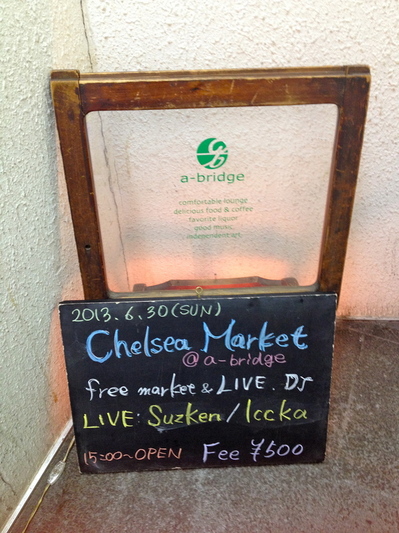 a-bridge
comfortable lounge
delicious food & coffee
favorite liquor
good music
independent art
2013.6.30(SUN)
Chelsea Market
@ a-bridge
free market & LIVE. DJ
LIVE: Suzken/Iccka
15:00~OPEN Fee ¥500